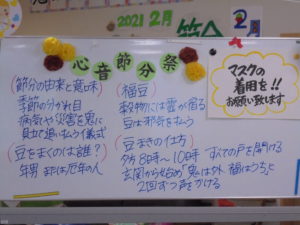 2021 2月
2月
心音節分祭
(節分の由来と意味)
季節の分かれ目
病気や災害を鬼に
見立て追い払う儀式
(豆をまくのは誰?)
年男 または厄年の人
(福豆)
穀物には霊が宿る
豆は邪気を払う
(豆まきの仕方)
夕方8時〜10時 すべての戸を開ける
玄関から始め「鬼は外 福はうち」と
2回ずつ声をかける
マスクの
着用を!!
お願い致します